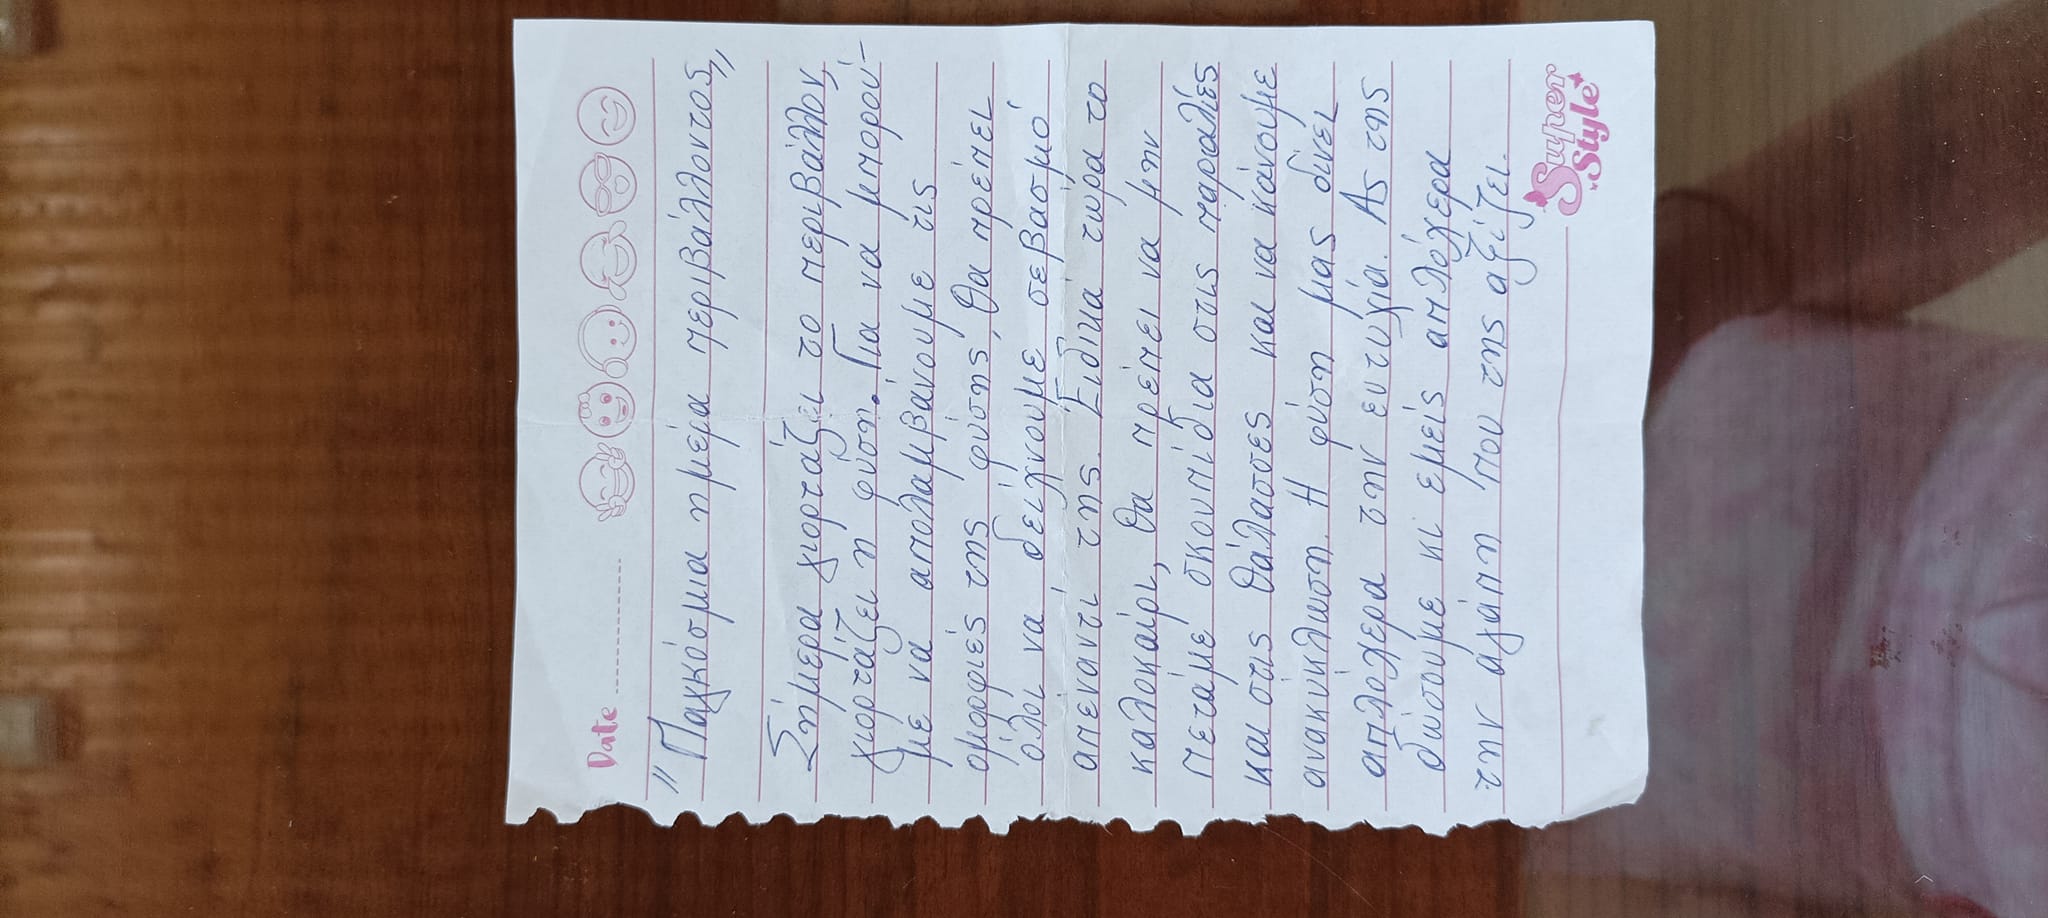 Date
"Παγκόσμια ημέρα περιβάλλοντος"
Σήμερα γιορτάζει το περιβάλλον,
γιορτάζει η φύση. Για να μπορού-
με να απολαμβάνουμε τις
ομορφιές της φύσης, θα πρέπει
όλοι να δείχνουμε σεβασμό
απέναντί της. Ειδικά τώρα το
καλοκαίρι, θα πρέπει να μην
πετάμε σκουπίδια στις παραλίες
και στις θάλασσες και να κάνουμε
ανακύκλωση. Η φύση μας δίνει
απλόχερα την ευτυχία. Ας της
δώσουμε κι εμείς απλόχερα
την αγάπη που της αξίζει.
Super
Style